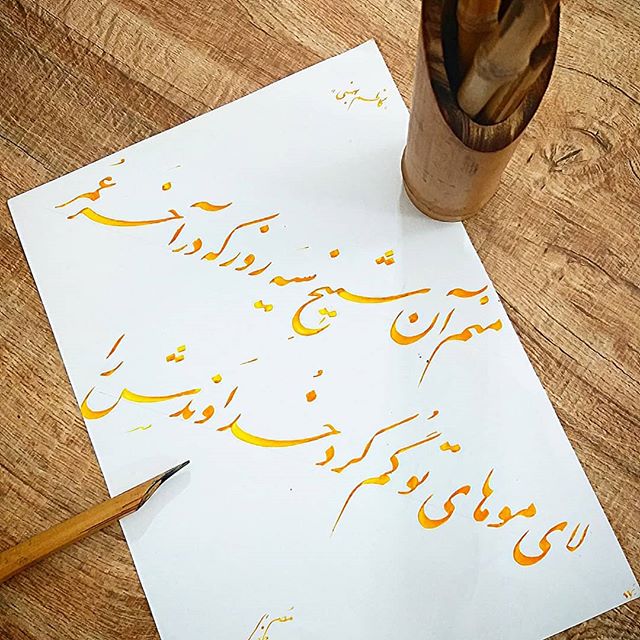 کاظم بهمنی
منم آن شیخ سیه روز که در آخر عمر
لای موهای تو گم کرد خداوندش را